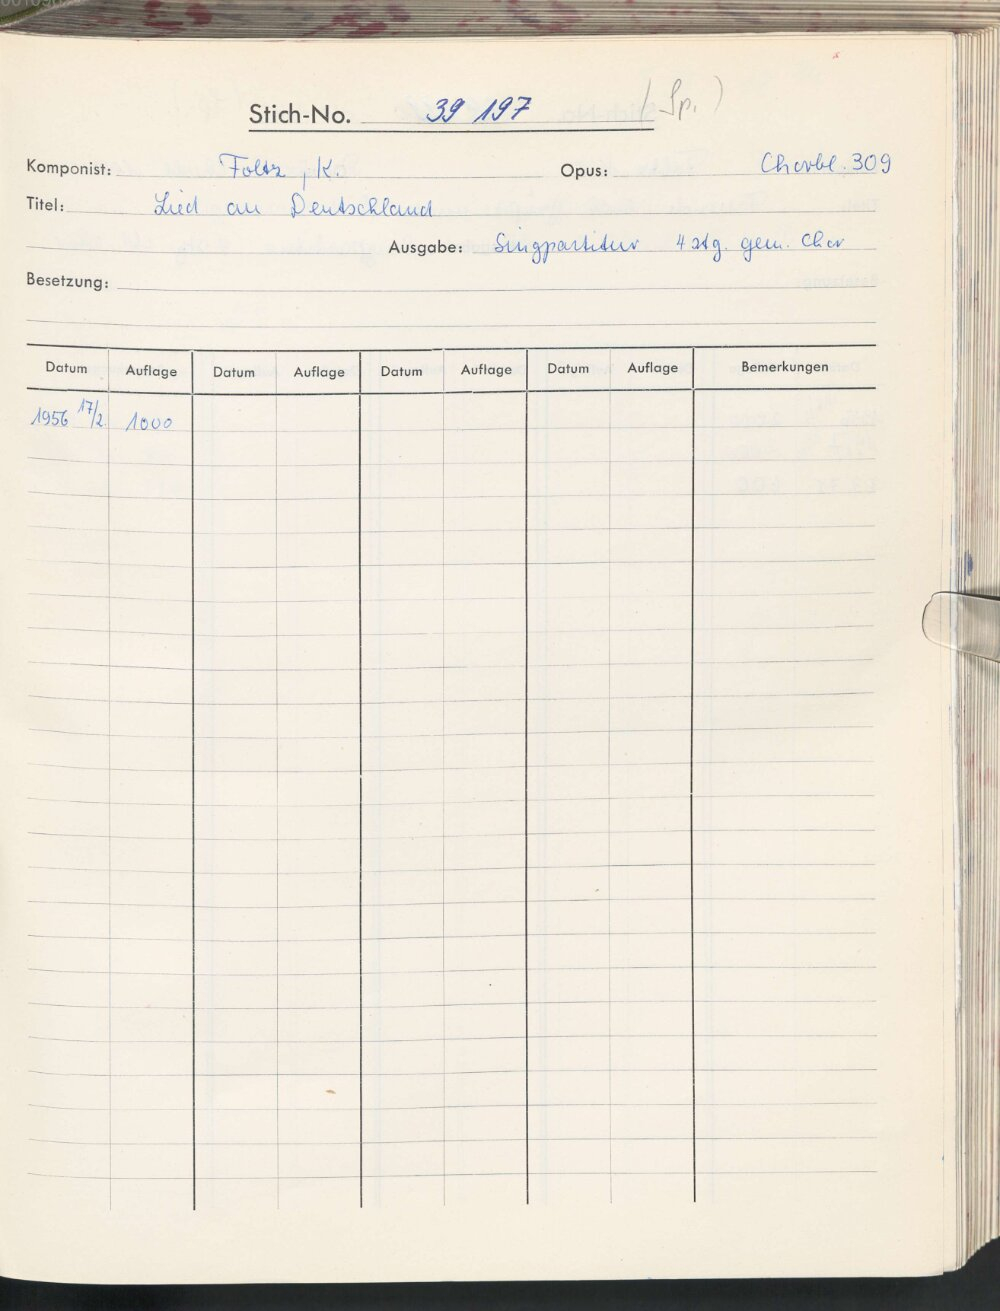 Stich-No. 39 197 (Sp.)
Komponist: Foltz, K. Opus: Chorbl. 309
Titel: Lied an Deutschland
Ausgabe: Singpartitur 4 stg. gem. Chor
Besetzung:
Datum Auflage Datum Auflage Datum Auflage Datum Auflage Bemerkungen
1956 17/2. 1000